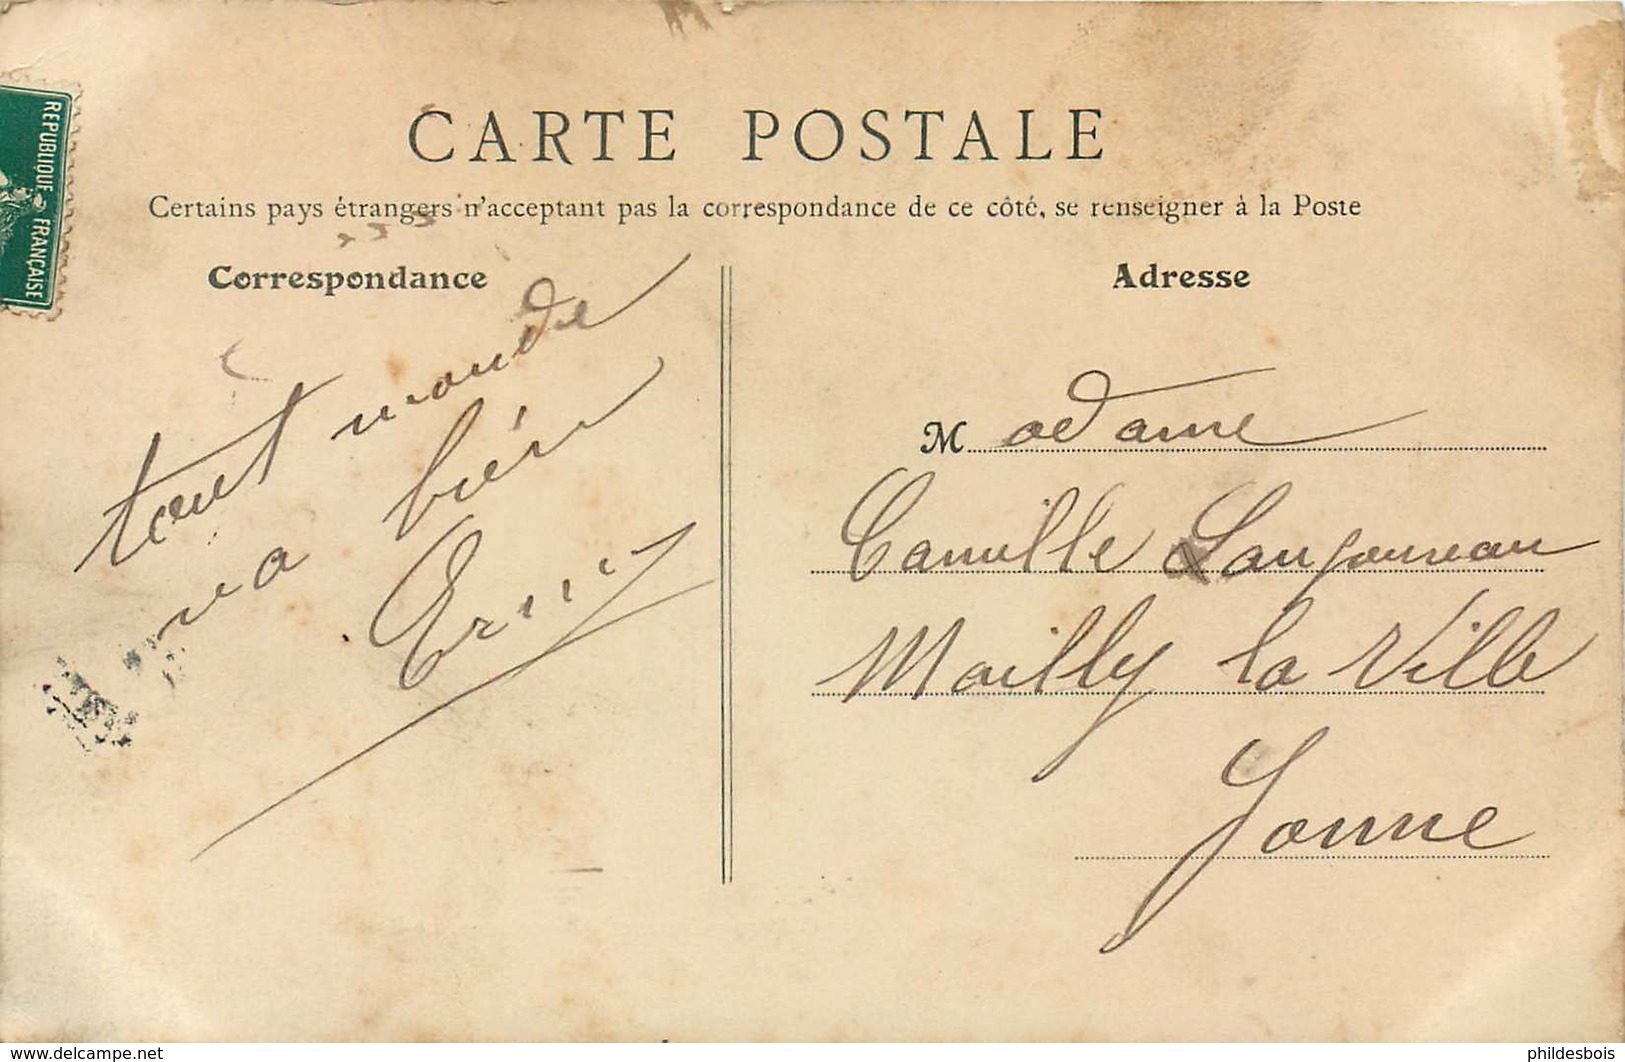 REPUBLIQUE FRANÇAISE
CARTE POSTALE
Certains pays étrangers n'acceptant pas la correspondance de ce côté, se renseigner à la Poste
Correspondance
tout monde
va bien
Adresse
Madame
Camille
Mailly la Ville
Yonne
www.delcampe.net
phildesbois